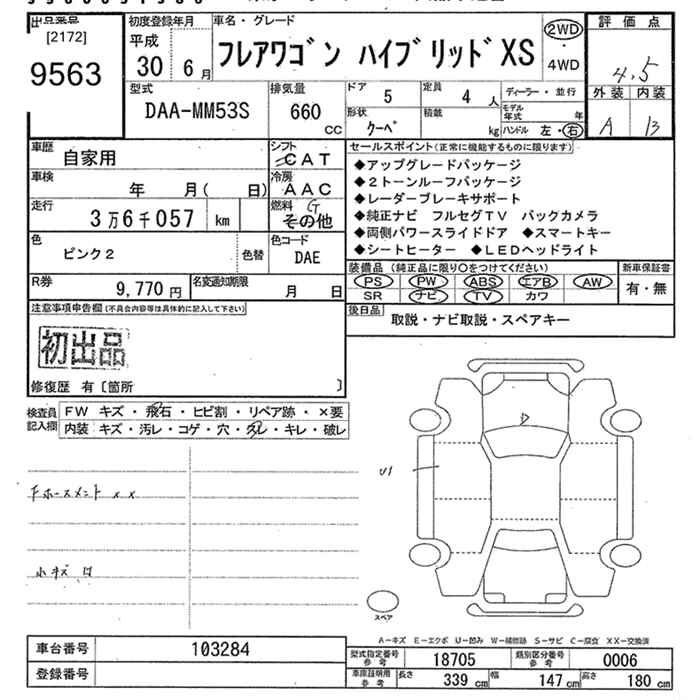 出品番号
[2172]
9563
初度登録年月
平成
30 6月
車名・グレード
フレアワゴン ハイブリッドXS
2WD
・
4WD
評価点
4.5
外装 内装
A B
型式
DAA-MM53S
排気量
660
CC
ドア
5
定員
4人
形状
クーペ
積載
kg
ディーラー・並行
モデル年式 年
ハンドル 左・右
車歴
自家用
シフト
CAT
車検
年 月( 日)
冷房
AAC
走行
3万6千057 km
燃料 G
その他
色
ピンク2
色替
色コード
DAE
R券
9,770円
名変通知期限
月 日
セールスポイント(正常に機能するものに限ります)
◆アップグレードパッケージ
◆2トーンルーフパッケージ
◆レーダーブレーキサポート
◆純正ナビ フルセグTV バックカメラ
◆両側パワースライドドア ◆スマートキー
◆シートヒーター ◆LEDヘッドライト
装備品(純正品に限り○をつけてください)
PS PW ABS エアB AW
SR ナビ TV カワ
新車保証書
有・無
後日品
取説・ナビ取説・スペアキー
注意事項申告欄(不具合内容等は具体的に記入して下さい)
初出品
修復歴 有〔箇所 〕
検査員記入欄
FW キズ・飛石・ヒビ割・リペア跡・×要
内装 キズ・汚レ・コゲ・穴・スレ・キレ・破レ
U1
小キズ
スペア
A-キズ E-エクボ U-凹み W-補修跡 S-サビ C-腐食 XX-交換済
車台番号
103284
登録番号
型式指定番号
参考
18705
類別区分番号
参考
0006
車庫証明用
参考
長さ
339 cm
幅
147 cm
高さ
180 cm